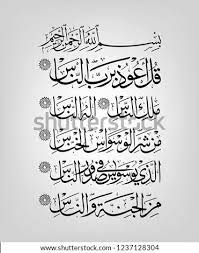 بسم الله الرحمن الرحيم
قل أعوذ برب الناس
ملك الناس إله الناس
من شر الوسواس الخناس
الذي يوسوس في صدور الناس
من الجنة والناس
shutterstock
www.shutterstock.com · 1237128304